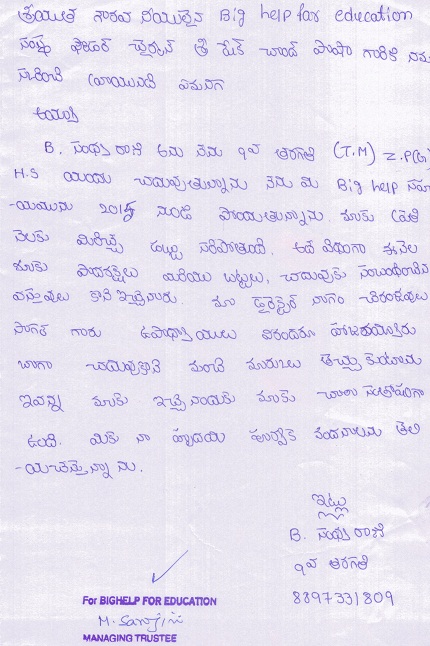 శ్రీయుత గౌరవ నీయులైన Big help for education
సంస్థ ఫౌండర్ చైర్మన్ శ్రీ షేక్ చాంద్ పాషా గారికి నమ
స్కరించి వ్రాయునది ఏమనగా
అయ్యా
B. సంధ్య రాణి అను నేను 9వ తరగతి (T.M) Z.P(G)
H.S యందు చదువుతున్నాను నేను మీ Big help సహా
-యమును 2015 నుండి పొందుతున్నాను. మాకు ప్రతి
నెలకు మీరిచ్చే డబ్బు సరిపోతుంది. అదే విధంగా ఈ నెల
మాకు పాదరక్షలు మరియు బట్టలు, చదువుకు సంబంధించిన
వస్తువులు కొని ఇచ్చినారు. మా డైరెక్టర్ చాగం
సాగర్ గారు ఉపాధ్యాయులు అందరూ
బాగా చదువుకొని మంచి మార్కులు తెచ్చు కుంటాను
ఇవన్ని మాకు ఇచ్చినందుకు మాకు చాలా సంతోషంగా
ఉంది. మీకు నా హృదయ పూర్వక వందనాలను తెలి
-యచేస్తున్నాను.
ఇట్లు
B. సంధ్య రాణి
9వ తరగతి
8897331809
For BIGHELP FOR EDUCATION
MANAGING TRUSTEE